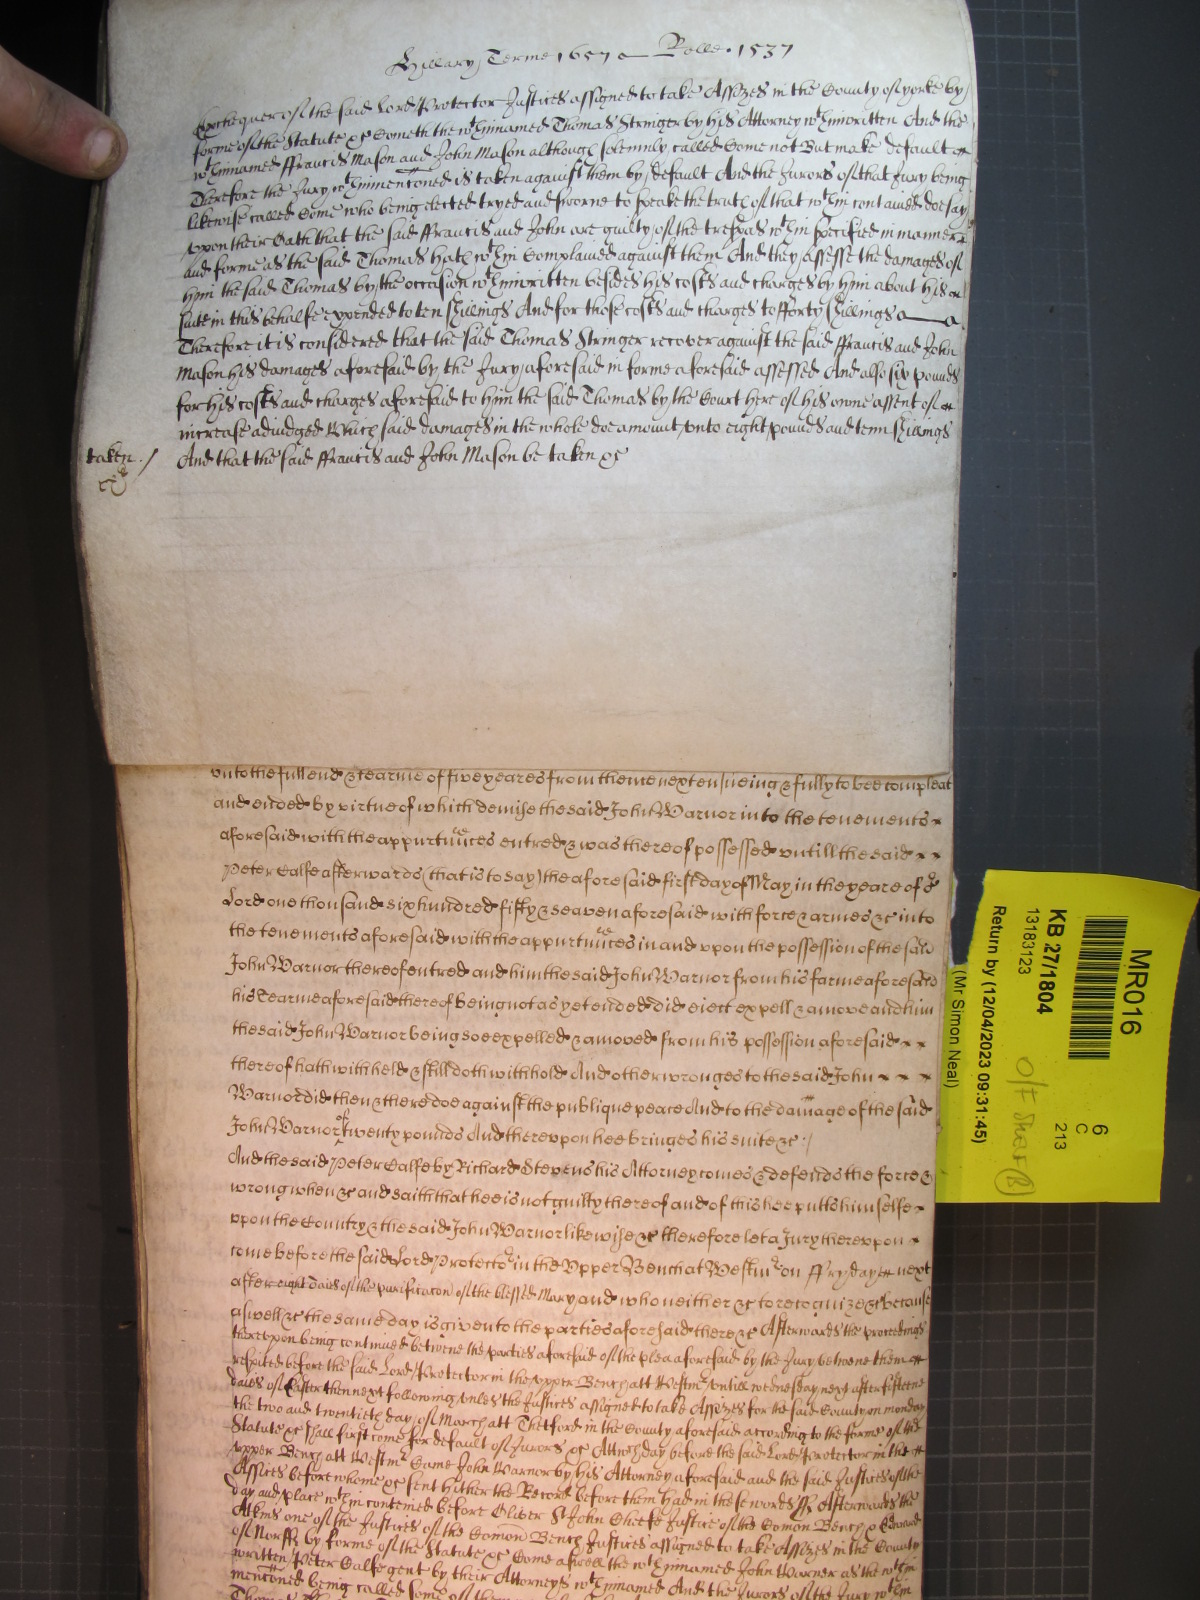 Hillary Terme 1657 Rolle · 1537
Exchequer of the said Lord Protector Justices assigned to take Assizes in the County of yorke by
forme of the Statute &c Cometh the wthinnamed Thomas Stringer by his Attorney wthinwritten And the
wthinnamed ffrancis Mason and John Mason although solemnly called Come not But make default
Therefore the Jury wthinmenconed is taken against them by default And the Jurors of that Jury being
likewise called Come who being elected tryed and sworne to speake the truth of that wthin contained doe say
vpon their Oath that the said ffrancis and John are guilty of the trespas wthin specified in manner
and forme as the said Thomas hath wthin Complained against them And they assesse the damages of
him the said Thomas by the occasion wthinwritten besides his costs and charges by him about his
suite in this behalfe expended to ten shillings And for those costs and charges to fforty shillings
Therefore it is considered that the said Thomas Stringer recover against the said ffrancis and John
Mason his damages aforesaid by the Jury aforesaid in forme aforesaid assessed And also six pounds
for his costs and charges aforesaid to him the said Thomas by the Court here of his owne assent of
increase adiudged Which said damages in the whole doe amount vnto eight pounds and tenn shillings
taken / And that the said ffrancis and John Mason be taken &c
vnto the full end & tearme of five yeares from thence next ensueing & fully to bee compleat
and ended by virtue of which demise the said John Warnor into the tenements
aforesaid with the appurtunces entred & was thereof possessed vntill the said
Peter Calfe afterwards (that is to say) the aforesaid first day of May in the yeare of or
Lord one thousand six hundred fifty & seaven aforesaid with force & armes &c into
the tenements aforesaid with the appurtunces in and vpon the possession of the said
John Warnor thereof entred and him the said John Warnor from his farme aforesaid
his tearme aforesaid thereof being not as yet ended did eiect expell & amove and him
the said John Warnor being soe expelled & amoved from his possession aforesaid
thereof hath withheld & still doth withhold And other wronges to the said John
Warnor did then & there doe against the publique peace And to the damage of the said
John Warnor of twenty pounds And therevpon hee bringes his suite &c :/
And the said Peter Calfe by Richard Stevens his Attorney comes & defends the force &
wrong when &c and saith that hee is not guilty thereof and of this hee putts himselfe
vpon the Country & the said John Warnor likewise &c therefore let a Jury therevpon
come before the said Lord Protector in the Vpper Bench at Westmr on ffryday next
after eight daies of the purificacon of the blessed Mary and who neither &c to recognize &c because
aswell &c the same day is given to the parties aforesaid there &c Afterwards the proceedings
therevpon being continued betweene the parties aforesaid of the plea aforesaid by the Jury betweene them
respited before the said Lord Protector in the vpper Bench att Westmr vntill wednesday next after fifteene
daies of Easter then next following vnles the Justices assigned to take Assizes for the said County on monday
the two and twentieth day of March att Thetford in the County aforesaid according to the forme of the
Statute &c shall first come for default of Jurors &c Att wch day before the said Lord Protector in the
vpper Bench att Westmr Came John Warnor by his Attorney aforesaid and the said Justices of the
Assizes before whome &c sent hither the Record before them had in these words ss Afterwards the
day and place wthin contained before Oliver St John Cheife Justice of the Comon Bench & Edward
Atkins one of the Justices of the Comon Bench Justices assigned to take Assizes in the County
of Norff by forme of the Statute &c Come aswell the wthinnamed John Warner as the wthin
written Peter Calfe gent by their Attorneys wthinnamed And the Jurors of the Jury wthin
menconed being called some of them
MR016
6
C
213
KB 27/1804
13183123
O/S Sheet (B)
Return by (12/04/2023 09:31:45)
(Mr Simon Neal)